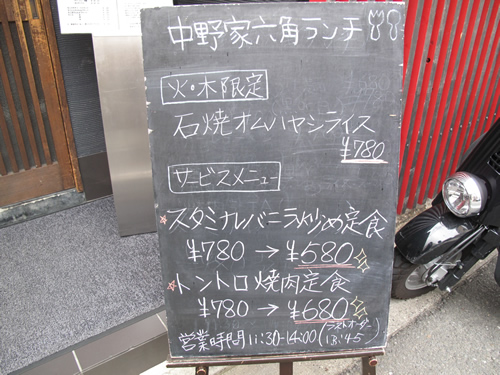 中野家六角ランチ
火・木限定
石焼オムハヤシライス
¥780
サービスメニュー
スタミナレバニラ炒め定食
¥780→¥580
トントロ焼肉定食
¥780→¥680
営業時間11:30-14:00(ラストオーダー13:45)